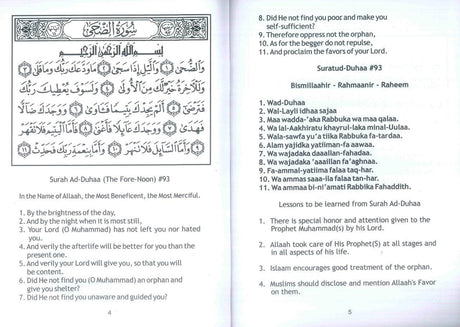 سُورَةُ الضُّحَى
بِسْمِ اللَّهِ الرَّحْمَٰنِ الرَّحِيمِ
وَالضُّحَىٰ ١ وَاللَّيْلِ إِذَا سَجَىٰ ٢ مَا وَدَّعَكَ رَبُّكَ وَمَا قَلَىٰ ٣
وَلَلْآخِرَةُ خَيْرٌ لَكَ مِنَ الْأُولَىٰ ٤ وَلَسَوْفَ يُعْطِيكَ رَبُّكَ
فَتَرْضَىٰ ٥ أَلَمْ يَجِدْكَ يَتِيمًا فَآوَىٰ ٦ وَوَجَدَكَ ضَالًّا
فَهَدَىٰ ٧ وَوَجَدَكَ عَائِلًا فَأَغْنَىٰ ٨ فَأَمَّا الْيَتِيمَ فَلَا تَقْهَرْ
٩ وَأَمَّا السَّائِلَ فَلَا تَنْهَرْ ١٠ وَأَمَّا بِنِعْمَةِ رَبِّكَ فَحَدِّثْ ١١
Surah Ad-Duhaa (The Fore-Noon) #93
In the Name of Allaah, the Most Beneficent, the Most Merciful.
1. By the brightness of the day,
2. And by the night when it is most still,
3. Your Lord (O Muhammad) has not left you nor hated
you.
4. And verily the afterlife will be better for you than the
present one.
5. And verily your Lord will give you, so that you will
be content.
6. Did He not find you (O Muhammad) an orphan and
give you shelter?
7. Did He not find you unaware and guided you?
4
8. Did He not find you poor and make you
self-sufficient?
9. Therefore oppress not the orphan,
10. As for the begger do not repulse,
11. And proclaim the favors of your Lord.
Suratud-Duhaa #93
Bismillaahir - Rahmaanir - Raheem
1. Wad-Duhaa
2. Wal-Layli idhaa sajaa
3. Maa wadda-'aka Rabbuka wa maa qalaa.
4. Wa lal-Aakhiratu khayrul-laka minal-Uulaa.
5. Wala-sawfa yu'a tiika Rabbuka fa-tardaa.
6. Alam yajidka yatiiman-fa aawaa.
7. Wa wajadaka daaallan-fahadaa.
8. Wa wajadaka 'aaaillan fa'aghnaa.
9. Fa-ammal-yatiima falaa taq-har.
10. Wa ammas saaa-ila falaa tan-har.
11. Wa ammaa bi-ni'amati Rabbika Fahaddith.
Lessons to be learned from Surah Ad-Duhaa
1. There is special honor and attention given to the
Prophet Muhammad(s) by his Lord.
2. Allaah took care of His Prophet(S) at all stages and
in all aspects of his life.
3. Islaam encourages good treatment of the orphan.
4. Muslims should disclose and mention Allaah's Favor
on them.
5